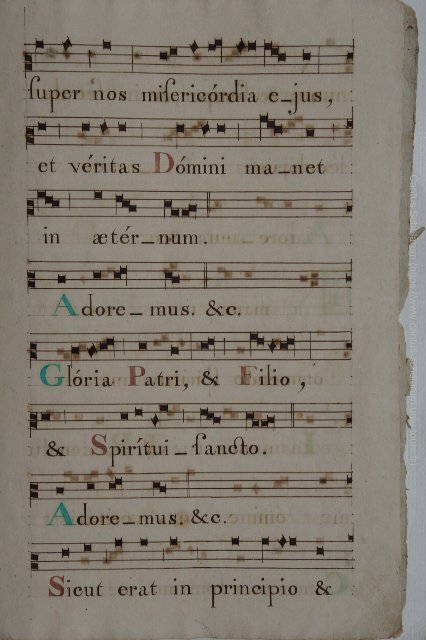 ſuper nos miſericórdia e_jus,
et véritas Dómini ma_net
in ætér_num.
Adore_mus. &c.
Glória Patri, & Filio,
& Spirítui_ſancto.
Adore_mus. &c.
Sicut erat in principio &